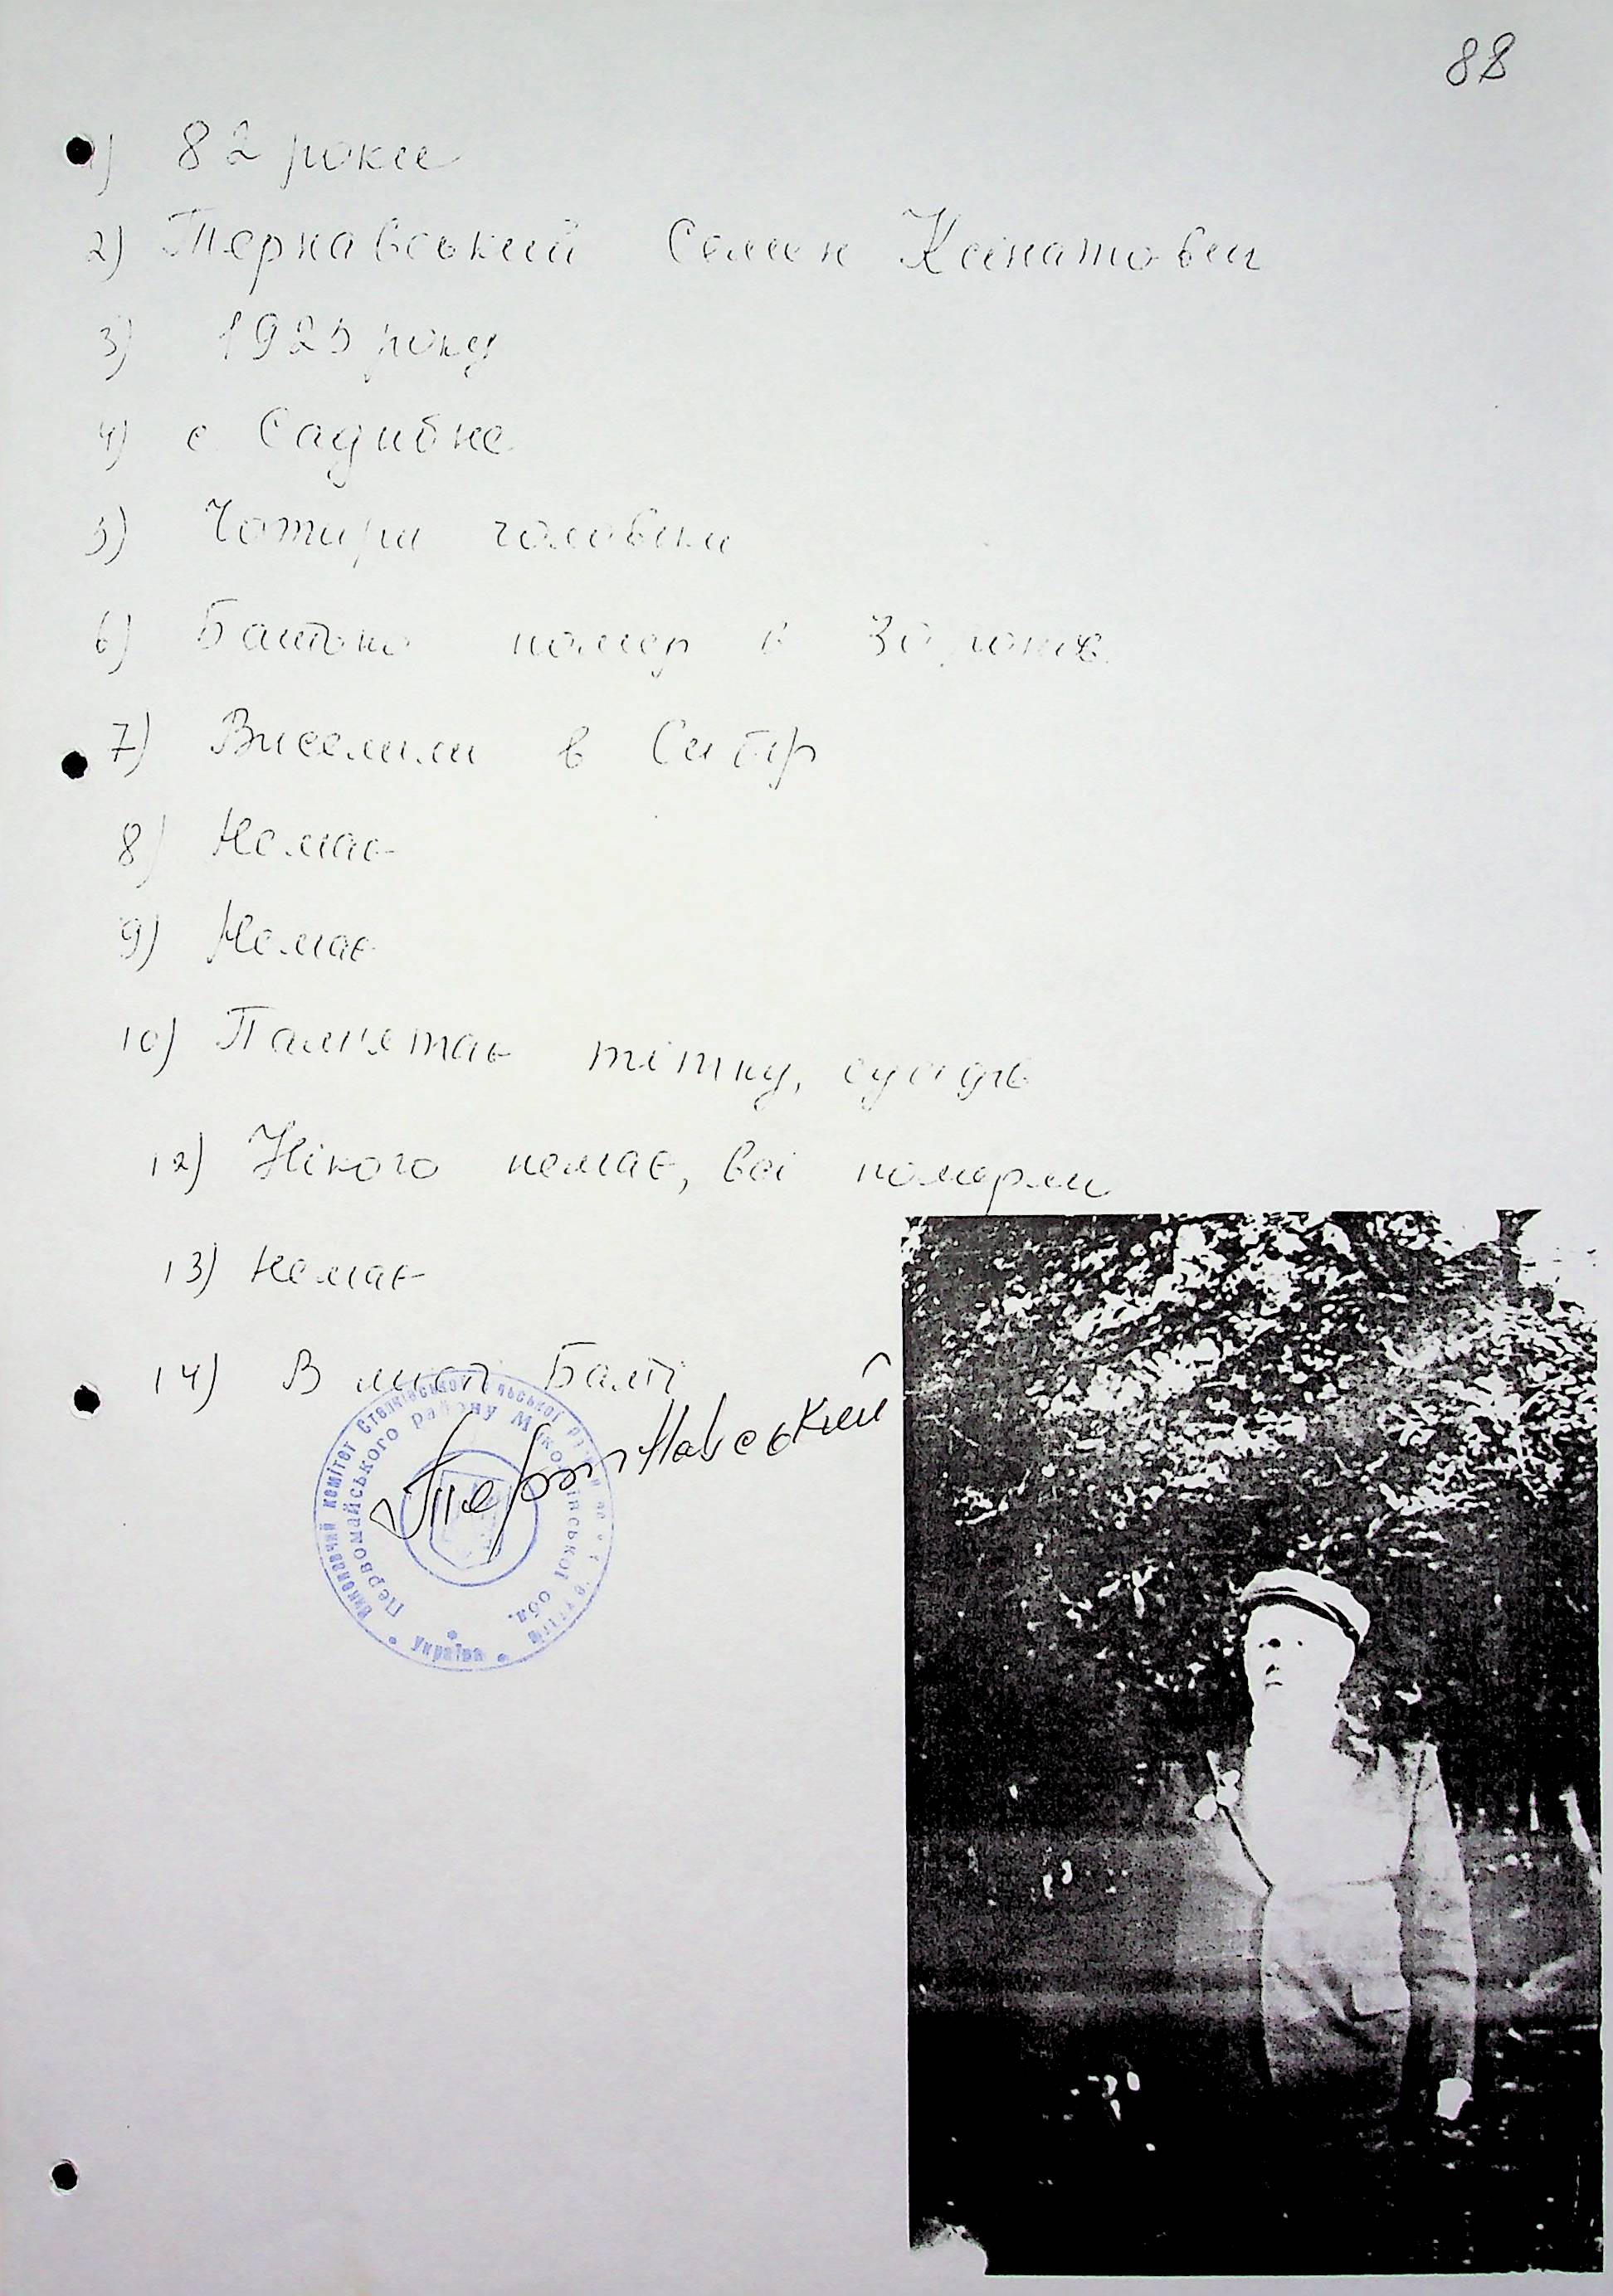 88
1) 82 роки
2) Тернавський Семен
3) 1925 року
4) с. Садибне
5) Чотири чоловіки
6) Батько помер в 30 років
7) Виселили в Сибір
8) Немає
9) Немає
10) Памп'ятає тітку, сусідів
12) Нікого немає, всі померли
13) немає
14) В місті Балті
Виконавчий комітет Степківської сільської ради
Первомайського району Миколаївської обл.
Україна